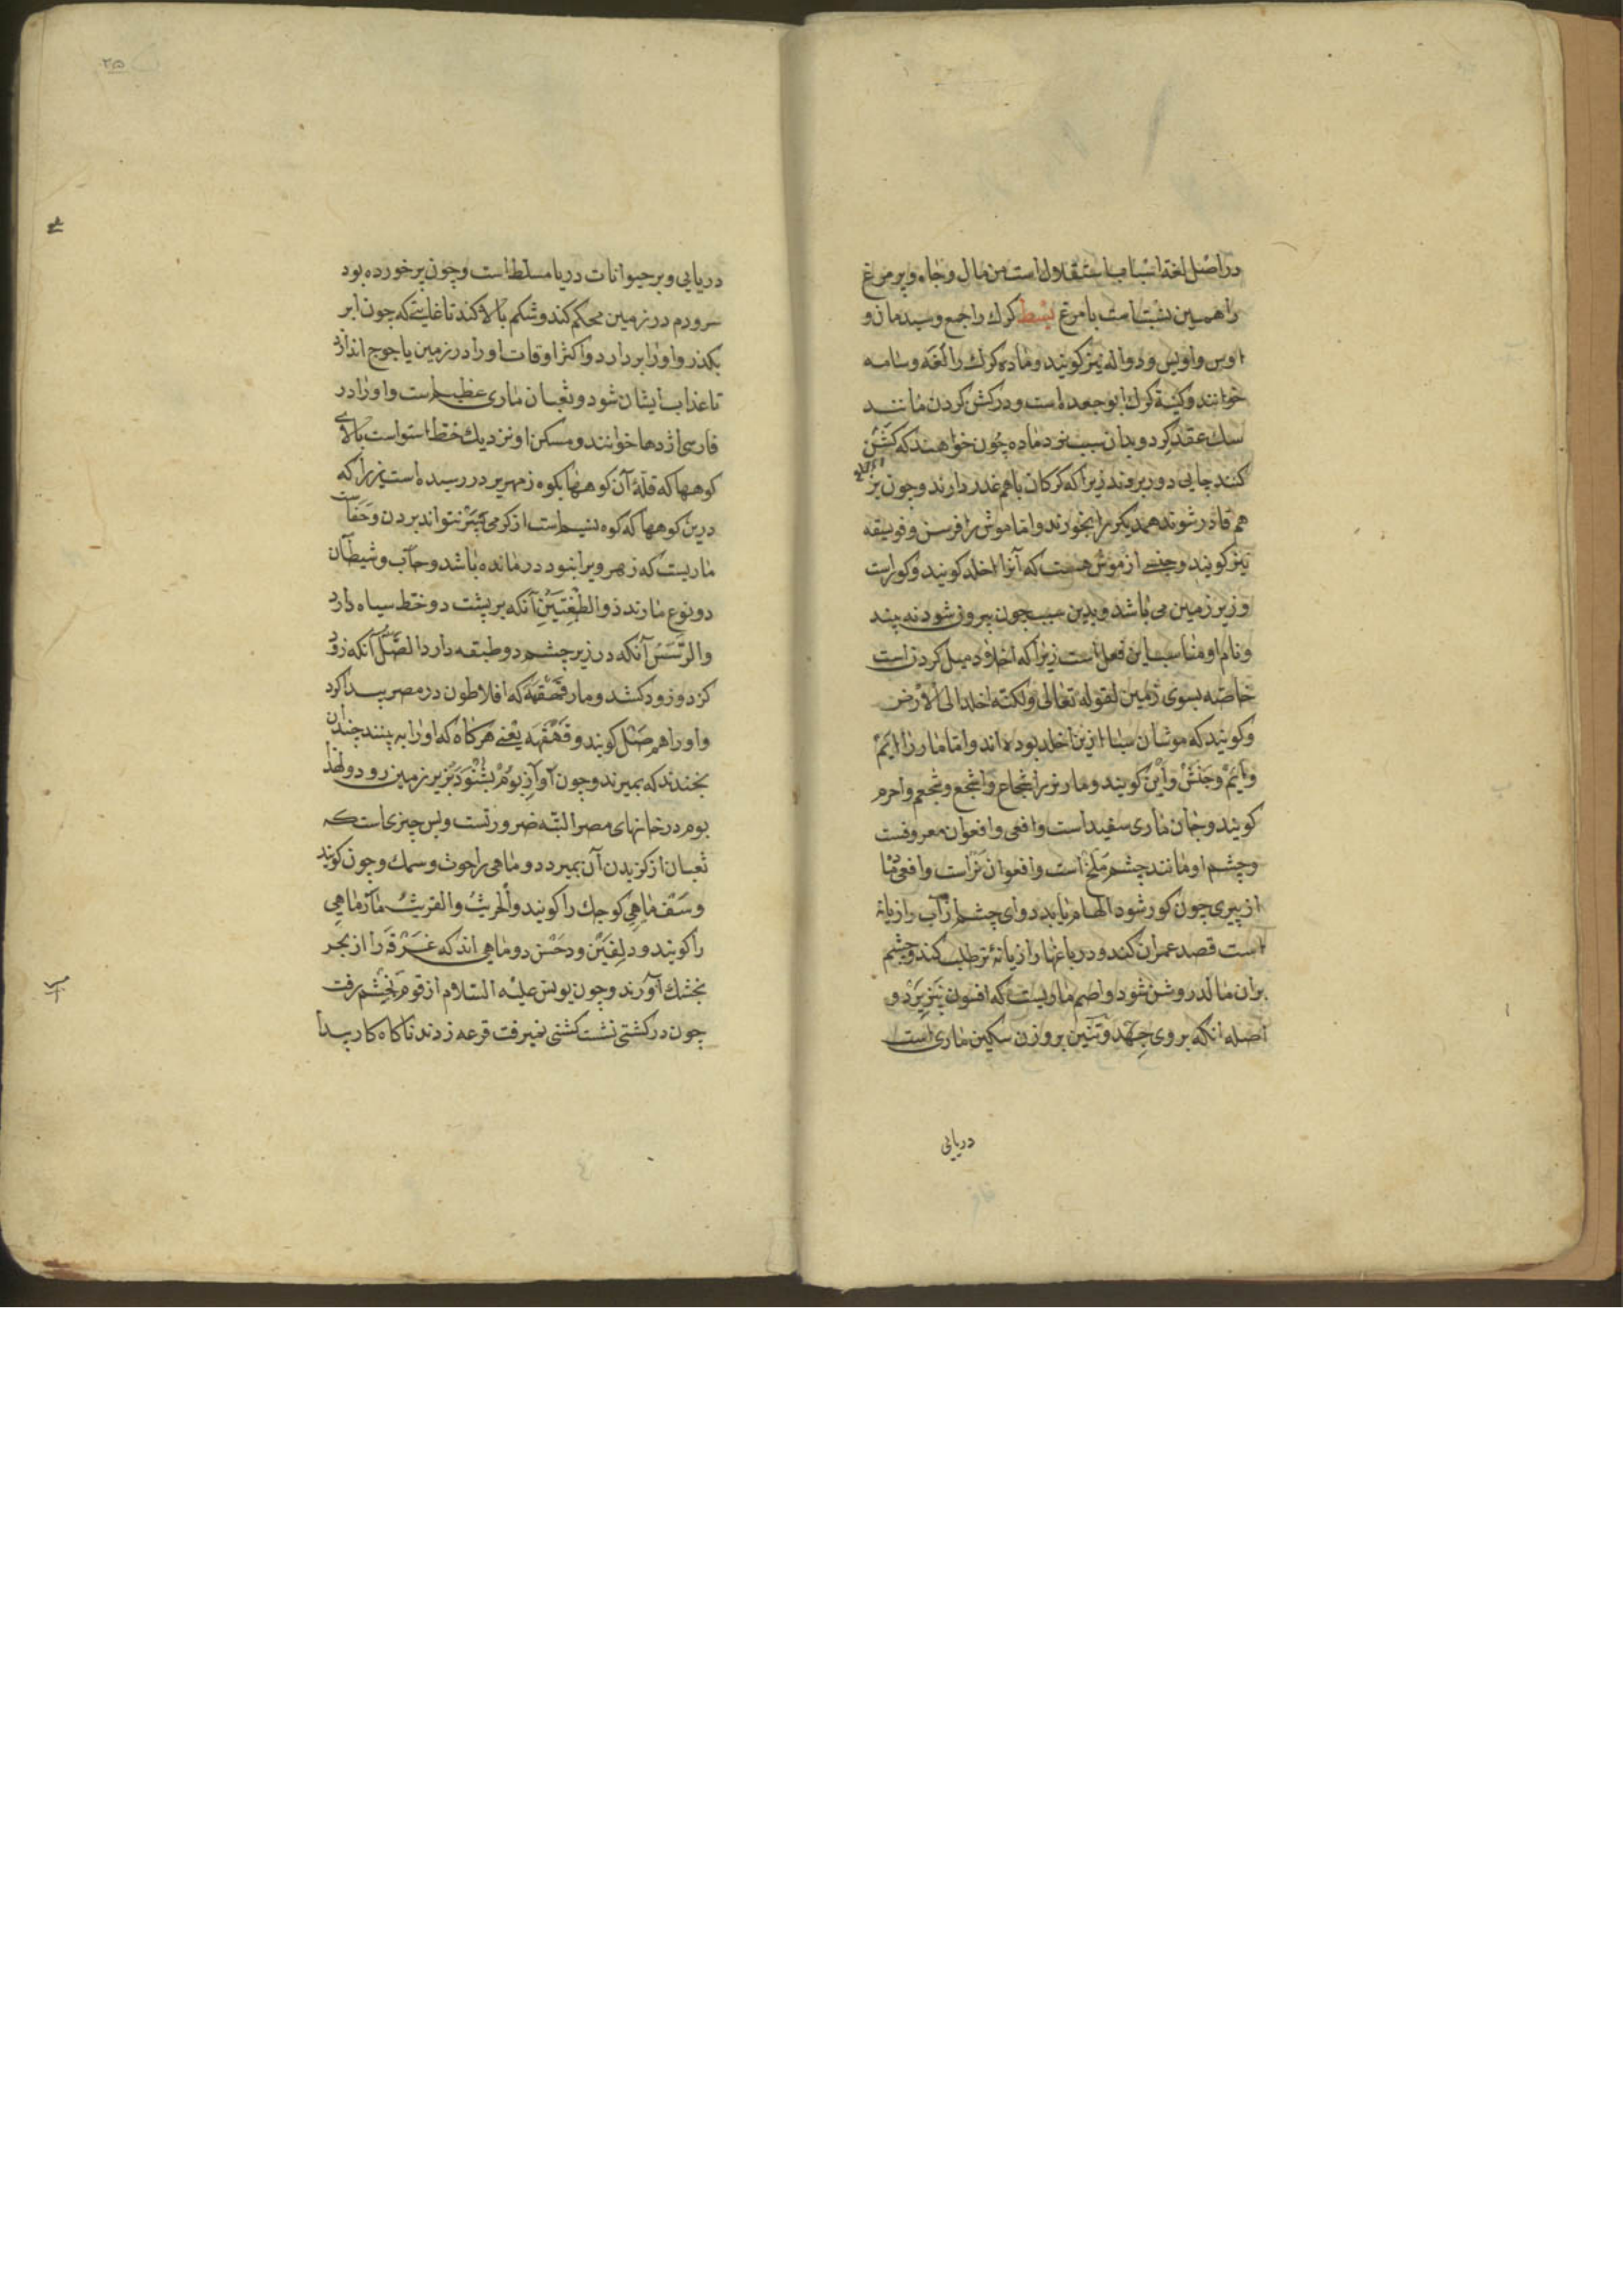 در اصل لغة اسباب استقلال است من مال و جاه و پر مرغ
را همین نسبت است با مرغ بسط کرک راجع و سیدمان و
اوس و اویس و ذواله نیز کویند و ماده کرک را لغه و سامه
خوانند و کنیة کرک ابو جعده است و در کش کردن مانند
سک عقد کردد و بدان سبب نر و ماده چون خواهند که کشن
کنند جایی دور روند زیرا که کرکان باهم غدر دارند و جون بر
هم قادر شوند همدیکر را بخورند و اما موش را فرسن و فویسقه
نیز کویند و جنسی از موش هست که آنرا اخلد کویند و کور است
و زیر زمین می باشد و بدین سبب جون بیرون شود نه بیند
و نام او مناسب این فعل است زیرا که اخلاد میل کردن است
خاصه بسوی زمین لقوله تعالی ولکنه اخلد الی الارض
و کویند که موشان سبا ازین اخلد بوده اند و اما مار را ایم
و ایّم و حنش و این کویند و مار نر را شجاع و اشجع و شجعم و احرم
کویند و جان ماری سفید است و افعی و افعوان معروفست
و چشم او مانند چشم ملخ است و افعوان نر است و افعی ما
از پیری جون کور شود الهام یابد دوای چشم از آب رازیانه
است قصد عمران کند و در باغها رازیانهٔ تر طلب کند و چشم
بر آن مالد روشن شود و اصم ماریست که افسون نپزیرد و
اصله انکه بر وی جهد و تنین بر وزن سکین ماری است
دریایی
۲۵
دریایی و بر حیوانات دریا مسلط است و چون پر خورده بود
سر و دم در زمین محکم کند و شکم بالا کند تا غایتی که جون ابر
بکذرد او را بردارد و اکثر اوقات او را در زمین یاجوج اندازد
تا عذاب ایشان شود و ثعبان ماری عظیم است و او را در
فارسی اژدها خوانند و مسکن او نزدیک خط استواست بالای
کوهها که قلهٔ آن کوهها بکوه زمهریر در رسیده است زیرا که
درین کوهها که کوه نسیم است از کرمی بیشتر نتواند بردن و حفات
ماریست که زهر ویرا نبود درمانده باشد و حباب و شیطان
دو نوع مارند ذو الطفیتین آنکه بر پشت دو خط سیاه دارد
و الرسس آنکه در زیر چشم دو طبقه دارد الصل آنکه زود
کزد و زود کشد و مار قهقهه که افلاطون در مصر پیدا کرد
و او را هم صل کویند و قهقهه یعنی هر کاه که او را به بینند چندان
بخندند که بمیرند و چون آواز بوم بشنود بزیر زمین رود و لهذا
بوم در خانهای مصر البته ضرورتست و بس چیزی است که
ثعبان از کزیدن آن بمیرد و ماهی را حوت و سمک و جون کویند
و سقف ماهی کوجک را کویند و الحریث و القریث مار ماهی
را کویند و دلفین و دخس دو ماهی اند که غرقه را از بحر
بخشک آورند و چون یونس علیه السلام از قوم بخشم برفت
جون در کشتی نشست کشتی نمیرفت قرعه زدند تا کاه کار پیدا